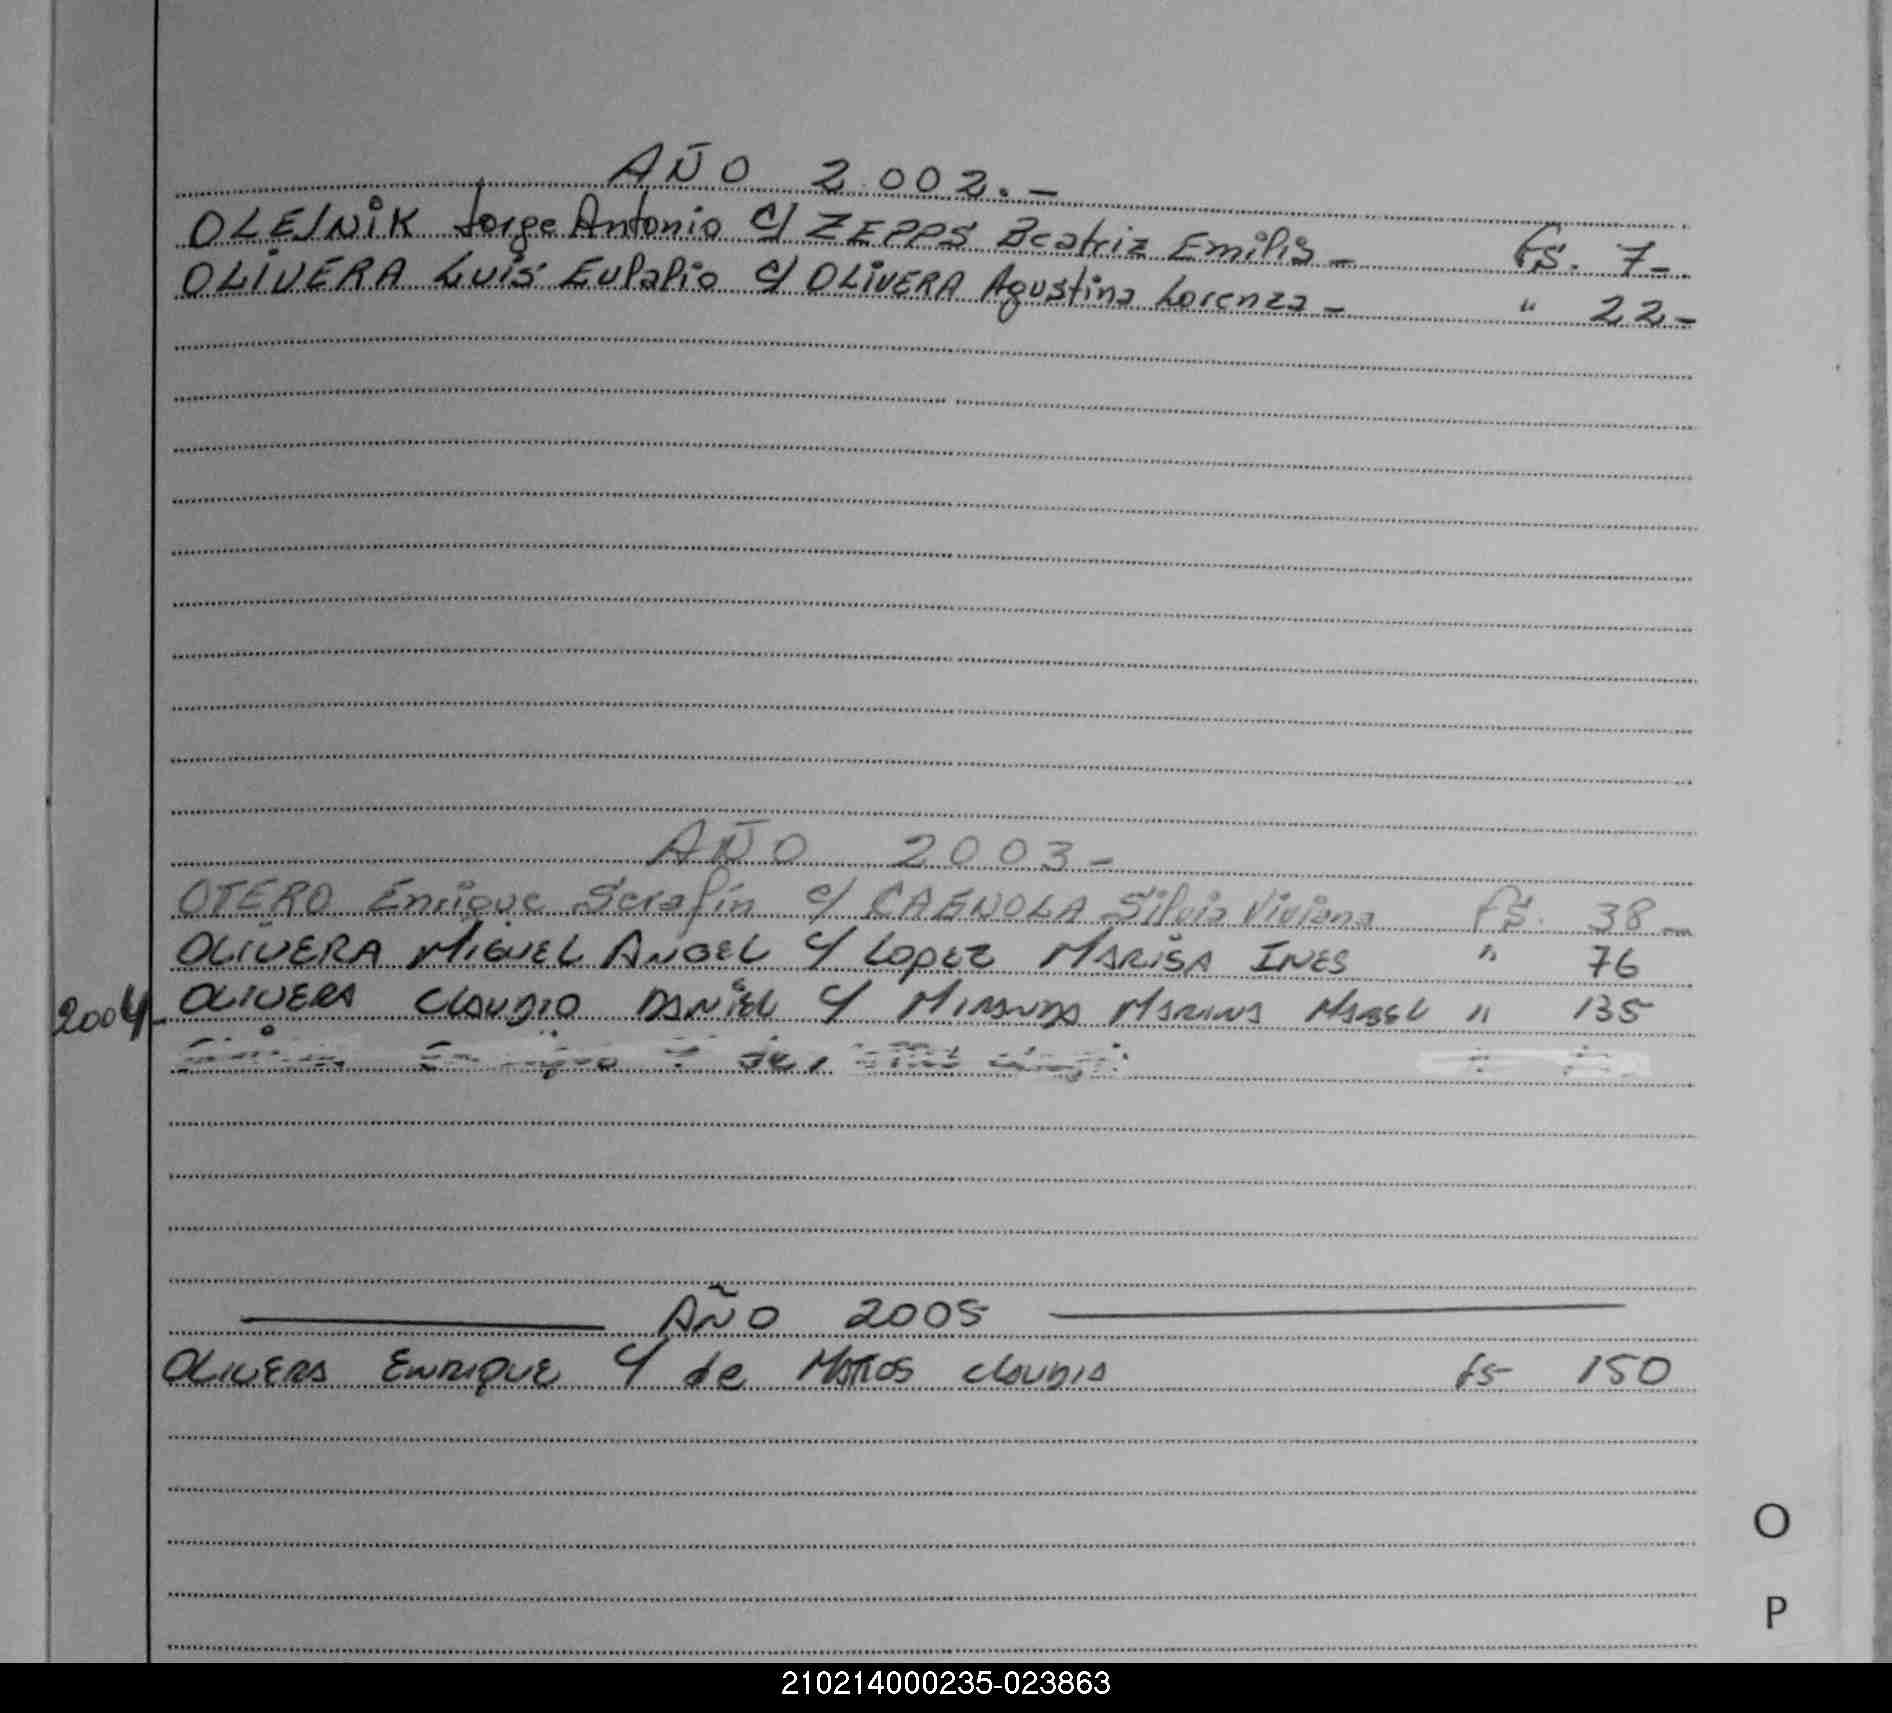 AÑO 2.002.-
OLEJNIK Jorge Antonio c/ ZEPPS Beatriz Emilia - Fs. 7-
OLIVERA Luis Eulalio c/ OLIVERA Agustina Lorenza - " 22-
AÑO 2003-
OTERO Enrique Serafín c/ CAENOLA Silvia Viviana fs. 38-
OLIVERA MIGUEL ANGEL c/ LOPEZ MARISA INES " 76
2004- OLIVERA CLAUDIO DANIEL c/ MIRANDA MARINA MABEL " 135
AÑO 2005
OLIVERA ENRIQUE c/ de MATTOS CLAUDIA fs 150
O
P
210214000235-023863